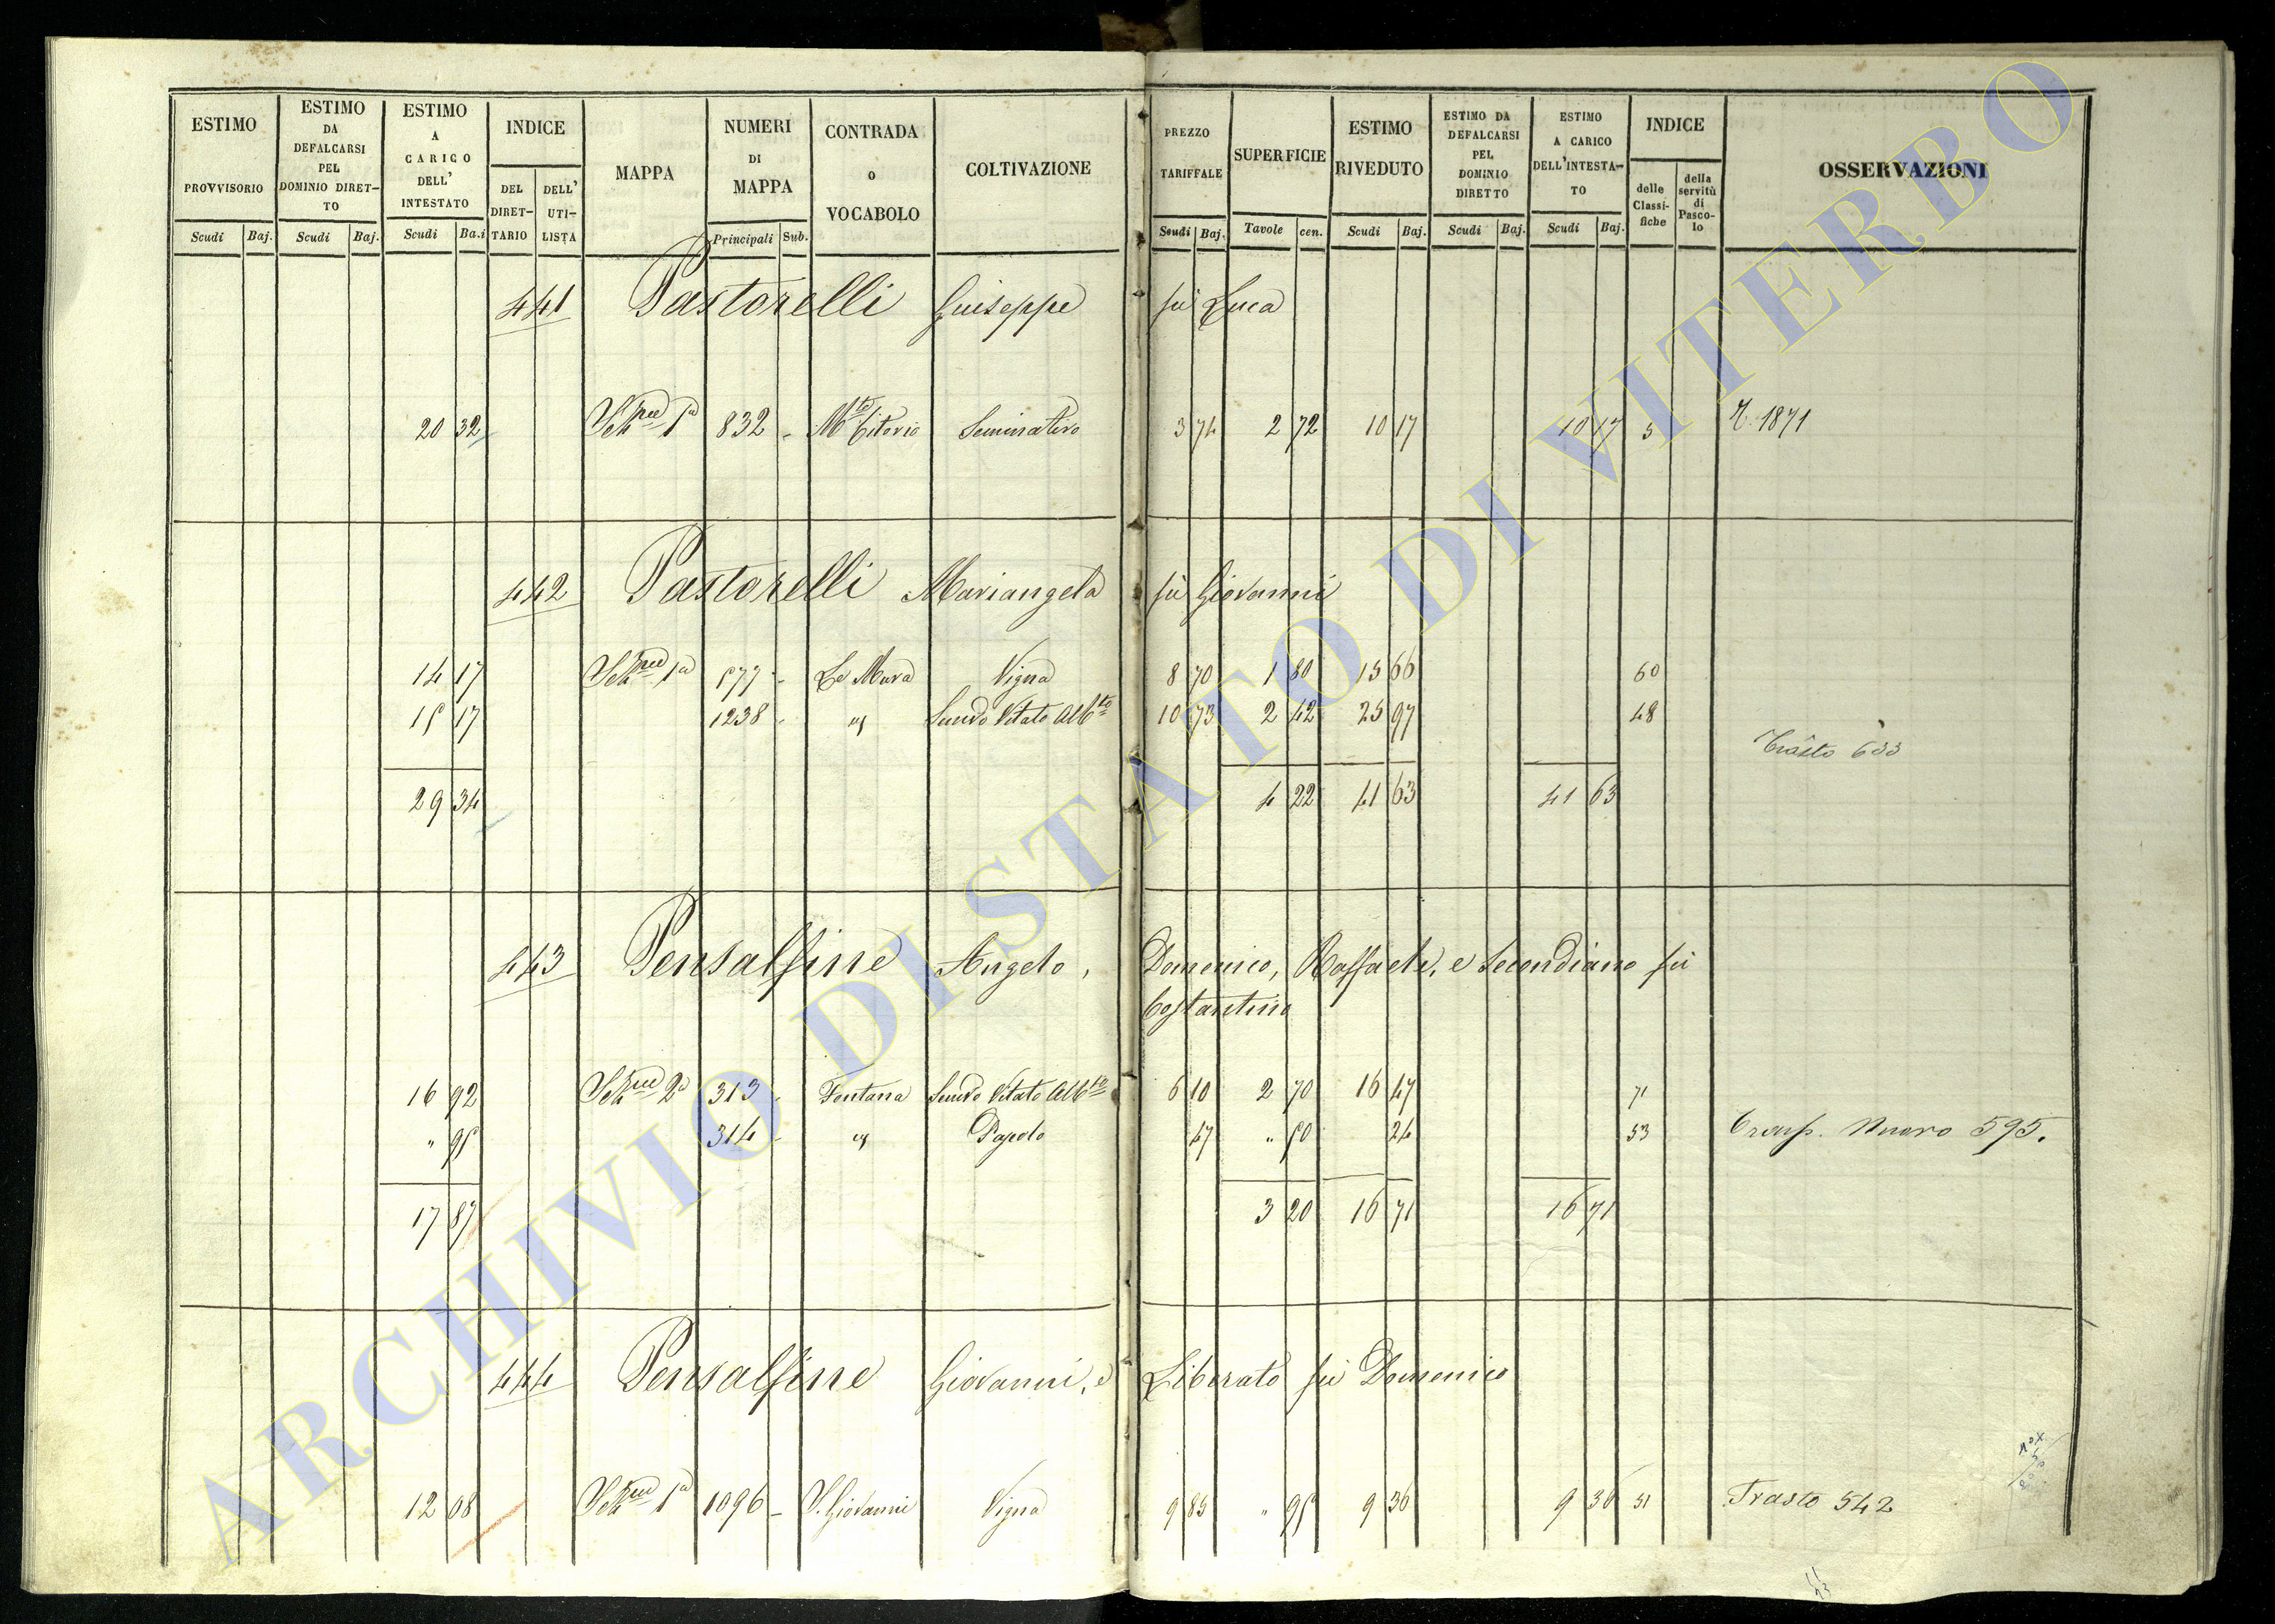 ESTIMO PROVVISORIO Scudi Baj.
ESTIMO DA DEFALCARSI PEL DOMINIO DIRET-TO Scudi Baj.
ESTIMO A CARICO DELL' INTESTATO Scudi Ba.i
INDICE DEL DIRET-TARIO DELL' UTI-LISTA
MAPPA
NUMERI DI MAPPA Principali Sub.
CONTRADA o VOCABOLO
COLTIVAZIONE
PREZZO TARIFFALE Scudi Baj.
SUPERFICIE Tavole cen.
ESTIMO RIVEDUTO Scudi Baj.
ESTIMO DA DEFALCARSI PEL DOMINIO DIRETTO Scudi Baj.
ESTIMO A CARICO DELL'INTESTA-TO Scudi Baj.
INDICE delle Classi-fiche della servitù di Pasco-lo
OSSERVAZIONI
441 Pastorelli Guiseppe fù Luca
20 32 1a 832 - Mte Citorio Seminativo 3 74 2 72 10 17 10 17 5 1871
442 Pastorelli Mariangela fù Giovanni
14 17 1a 577 - Le Mura Vigna 8 70 1 80 15 66 60
15 17 1238 - Semvo Vitato Albto 10 73 2 42 25 97 48
Trasto 633
29 34 4 22 41 63 41 63
443 Pensalfine Angelo, Domenico, Raffaele, e Secondiano fù
Costantino
16 92 2a 313 - Fontana Semvo Vitato Albto 6 10 2 70 16 47 71
" 95 314 - Pascolo 47 " 50 24 53 Trasp. Nuovo 595.
17 87 3 20 16 71 16 71
444 Pensalfine Giovanni, e Liberato fù Domenico
12 08 1a 1096 - S. Giovanni Vigna 9 85 " 95 9 36 9 36 51 Trasto 542
ARCHIVIO DI STATO DI VITERBO